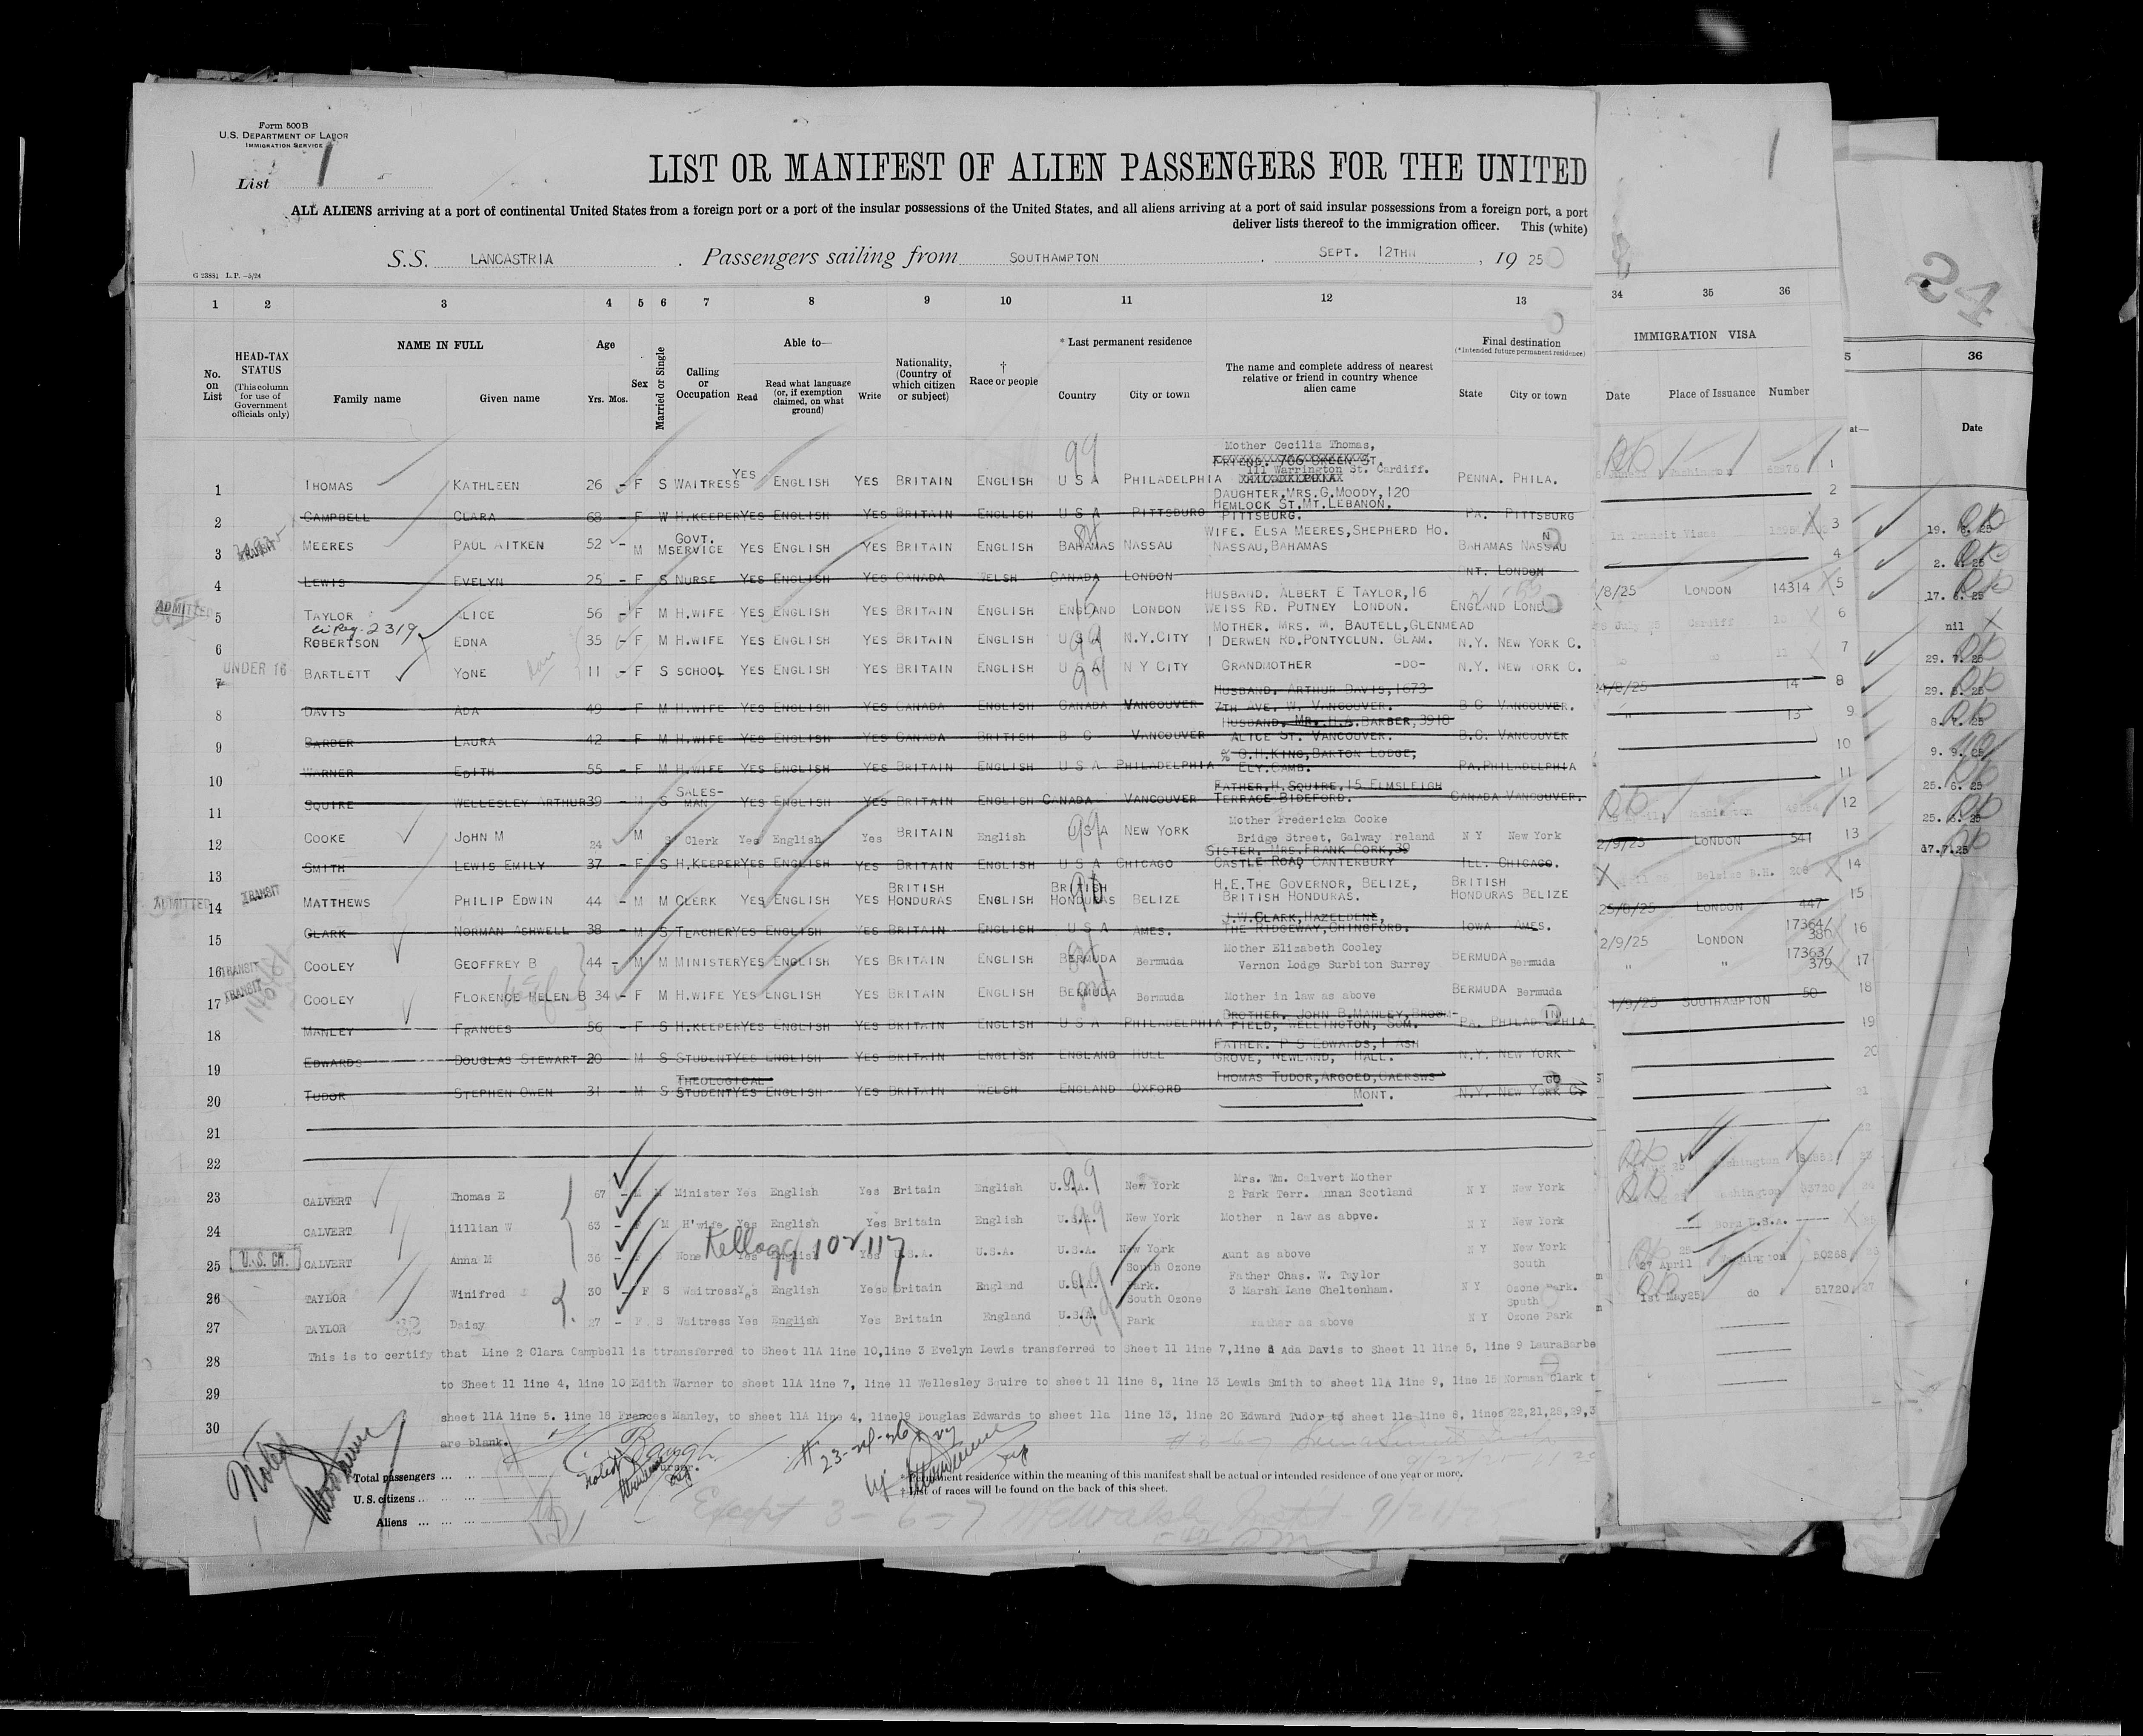 Form 500 B
U.S. DEPARTMENT OF LABOR
IMMIGRATION SERVICE
List 1
LIST OR MANIFEST OF ALIEN PASSENGERS FOR THE UNITED
ALL ALIENS arriving at a port of continental United States from a foreign port or a port of the insular possessions of the United States, and all aliens arriving at a port of said insular possessions from a foreign port, a port
deliver lists thereof to the immigration officer. This (white)
S.S. LANCASTRIA . Passengers sailing from SOUTHAMPTON , SEPT. 12TH , 19 25
G 23881 L.P. -5/24
1 2 3 4 5 6 7 8 9 10 11 12 13 34 35 36
No. on List
HEAD-TAX STATUS (This column for use of Government officials only)
NAME IN FULL Family name Given name
Age Yrs. Mos.
Sex
Married or Single
Calling or Occupation
Able to— Read Read what language (or, if exemption claimed, on what ground) Write
Nationality, (Country of which citizen or subject)
† Race or people
* Last permanent residence Country City or town
The name and complete address of nearest relative or friend in country whence alien came
Final destination (*Intended future permanent residence) State City or town
IMMIGRATION VISA Date Place of Issuance Number
36 Date
24
1 THOMAS KATHLEEN 26 - F S WAITRESS YES ENGLISH YES BRITAIN ENGLISH U S A PHILADELPHIA Mother Cecilia Thomas, 111 Warrington St. Cardiff. PENNA. PHILA.
2 CAMPBELL CLARA 68 - F W H.KEEPER YES ENGLISH YES BRITAIN ENGLISH U S A PITTSBURG DAUGHTER, MRS. G. MOODY, 120 HEMLOCK ST, MT. LEBANON. PITTSBURG. PA. PITTSBURG
3 TRANSIT MEERES PAUL AITKEN 52 - M M GOVT. SERVICE YES ENGLISH YES BRITAIN ENGLISH BAHAMAS NASSAU WIFE. ELSA MEERES, SHEPHERD HO. NASSAU, BAHAMAS BAHAMAS NASSAU In Transit Visas
4 LEWIS EVELYN 25 - F S NURSE YES ENGLISH YES CANADA WELSH CANADA LONDON ONT. LONDON
5 ADMITTED TAYLOR ALICE 56 - F M H.WIFE YES ENGLISH YES BRITAIN ENGLISH ENGLAND LONDON HUSBAND. ALBERT E TAYLOR, 16 WEISS RD. PUTNEY LONDON. ENGLAND LOND /8/25 LONDON 14314
6 ROBERTSON EDNA 35 - F M H.WIFE YES ENGLISH YES BRITAIN ENGLISH U S A N.Y.CITY MOTHER. MRS. M. BAUTELL, GLENMEAD 1 DERWEN RD. PONTYCLUN. GLAM. N.Y. NEW YORK C. Cardiff
7 UNDER 16 BARTLETT YONE 11 - F S SCHOOL YES ENGLISH YES BRITAIN ENGLISH U S A N Y CITY GRANDMOTHER -DO- N.Y. NEW YORK C.
8 DAVIS ADA 49 - F M H.WIFE YES ENGLISH YES CANADA ENGLISH CANADA VANCOUVER HUSBAND. ARTHUR DAVIS, 1673 7TH AVE. W. VANCOUVER. B C VANCOUVER. 4/8/25 14
9 BARBER LAURA 42 - F M H.WIFE YES ENGLISH YES CANADA BRITISH B C VANCOUVER HUSBAND. MR. H.A. BARBER, 3918 ALICE ST. VANCOUVER. B.C. VANCOUVER " 13
10 WARNER EDITH 55 - F M H.WIFE YES ENGLISH YES BRITAIN ENGLISH U S A PHILADELPHIA % G.H. KING, BARTON LODGE, ELY. CAMB. PA. PHILADELPHIA
11 SQUIRE WELLESLEY ARTHUR 39 - M S SALES-MAN YES ENGLISH YES BRITAIN ENGLISH CANADA VANCOUVER FATHER. H. SQUIRE, 15 ELMSLEIGH TERRACE BIDEFORD. CANADA VANCOUVER.
12 COOKE JOHN M 24 M S Clerk Yes English Yes BRITAIN English U S A NEW YORK Mother Fredericka Cooke Bridge Street, Galway Ireland N Y New York
13 SMITH LEWIS EMILY 37 - F S H.KEEPER YES ENGLISH YES BRITAIN ENGLISH U S A CHICAGO SISTER, MRS. FRANK CORK, 39 CASTLE ROAD CANTERBURY ILL. CHICAGO. 2/9/25 LONDON 541
14 ADMITTED TRANSIT MATTHEWS PHILIP EDWIN 44 - M M CLERK YES ENGLISH YES BRITISH HONDURAS ENGLISH BRITISH HONDURAS BELIZE H.E. THE GOVERNOR, BELIZE, BRITISH HONDURAS. BRITISH HONDURAS BELIZE
15 CLARK NORMAN ASHWELL 38 - M S TEACHER YES ENGLISH YES BRITAIN ENGLISH U S A AMES. J.W. CLARK, HAZELDENE, THE RIDGEWAY, CHINGFORD. IOWA AMES. 25/8/25 LONDON 447
16 TRANSIT COOLEY GEOFFREY B 44 - M M MINISTER YES ENGLISH YES BRITAIN ENGLISH BERMUDA Bermuda Mother Elizabeth Cooley Vernon Lodge Surbiton Surrey BERMUDA Bermuda 2/9/25 LONDON 17364/ 380
17 TRANSIT COOLEY FLORENCE HELEN B 34 - F M H.WIFE YES ENGLISH YES BRITAIN ENGLISH BERMUDA Bermuda Mother in law as above BERMUDA Bermuda " " 17363/ 379
18 MANLEY FRANCES 56 - F S H.KEEPER YES ENGLISH YES BRITAIN ENGLISH U S A PHILADELPHIA BROTHER. JOHN B. MANLEY, BROOM-FIELD, WELLINGTON, SOM. PA. PHILADELPHIA 1/9/25 SOUTHAMPTON 50
19 EDWARDS DOUGLAS STEWART 20 - M S STUDENT YES ENGLISH YES BRITAIN ENGLISH ENGLAND HULL FATHER. P S EDWARDS, 1 ASH GROVE, NEWLAND, HALL. N.Y. NEW YORK
20 TUDOR STEPHEN OWEN 31 - M S THEOLOGICAL STUDENT YES ENGLISH YES BRITAIN WELSH ENGLAND OXFORD THOMAS TUDOR, ARGOED, CAERSWS MONT. N.Y. NEW YORK C.
21
22
23 CALVERT Thomas E 67 - M M Minister Yes English Yes Britain English U.S.A. New York Mrs. Wm. Calvert Mother 2 Park Terr. Annan Scotland N Y New York
24 CALVERT lillian W 63 - F M H'wife Yes English Yes Britain English U.S.A. New York Mother n law as above. N Y New York
Kellogg 102 117
25 U.S. CIT. CALVERT Anna M 36 - None Yes English Yes U.S.A. U.S.A. U.S.A. New York Aunt as above N Y New York Born U.S.A.
26 TAYLOR Winifred 30 - F S Waitress Yes English Yes Britain England U.S.A. South Ozone Park. Father Chas. W. Taylor 3 Marsh Lane Cheltenham. N Y South Ozone Park. 27 April Washington 50268
27 TAYLOR Daisy 27 - F S Waitress Yes English Yes Britain England U.S.A. South Ozone Park Father as above N Y South Ozone Park 1st May25 do 51720
28 This is to certify that Line 2 Clara Campbell is ttransferred to Sheet 11A line 10,line 3 Evelyn Lewis transferred to Sheet 11 line 7,line 8 Ada Davis to Sheet 11 line 5, line 9 LauraBarbe
29 to Sheet 11 line 4, line 10 Edith Warner to sheet 11A line 7, line 11 Wellesley Squire to sheet 11 line 8, line 13 Lewis Smith to sheet 11A line 9, line 15 Norman Clark t
30 sheet 11A line 5. line 18 Frances Manley, to sheet 11A line 4, line19 Douglas Edwards to sheet 11a line 13, line 20 Edward Tudor to sheet 11a line 8, lines 22,21,28,29,3
are blank.
Noted
Total passengers
U.S. citizens
Aliens
Purser.
* Permanent residence within the meaning of this manifest shall be actual or intended residence of one year or more.
List of races will be found on the back of this sheet.
Except 3 - 6 - 7